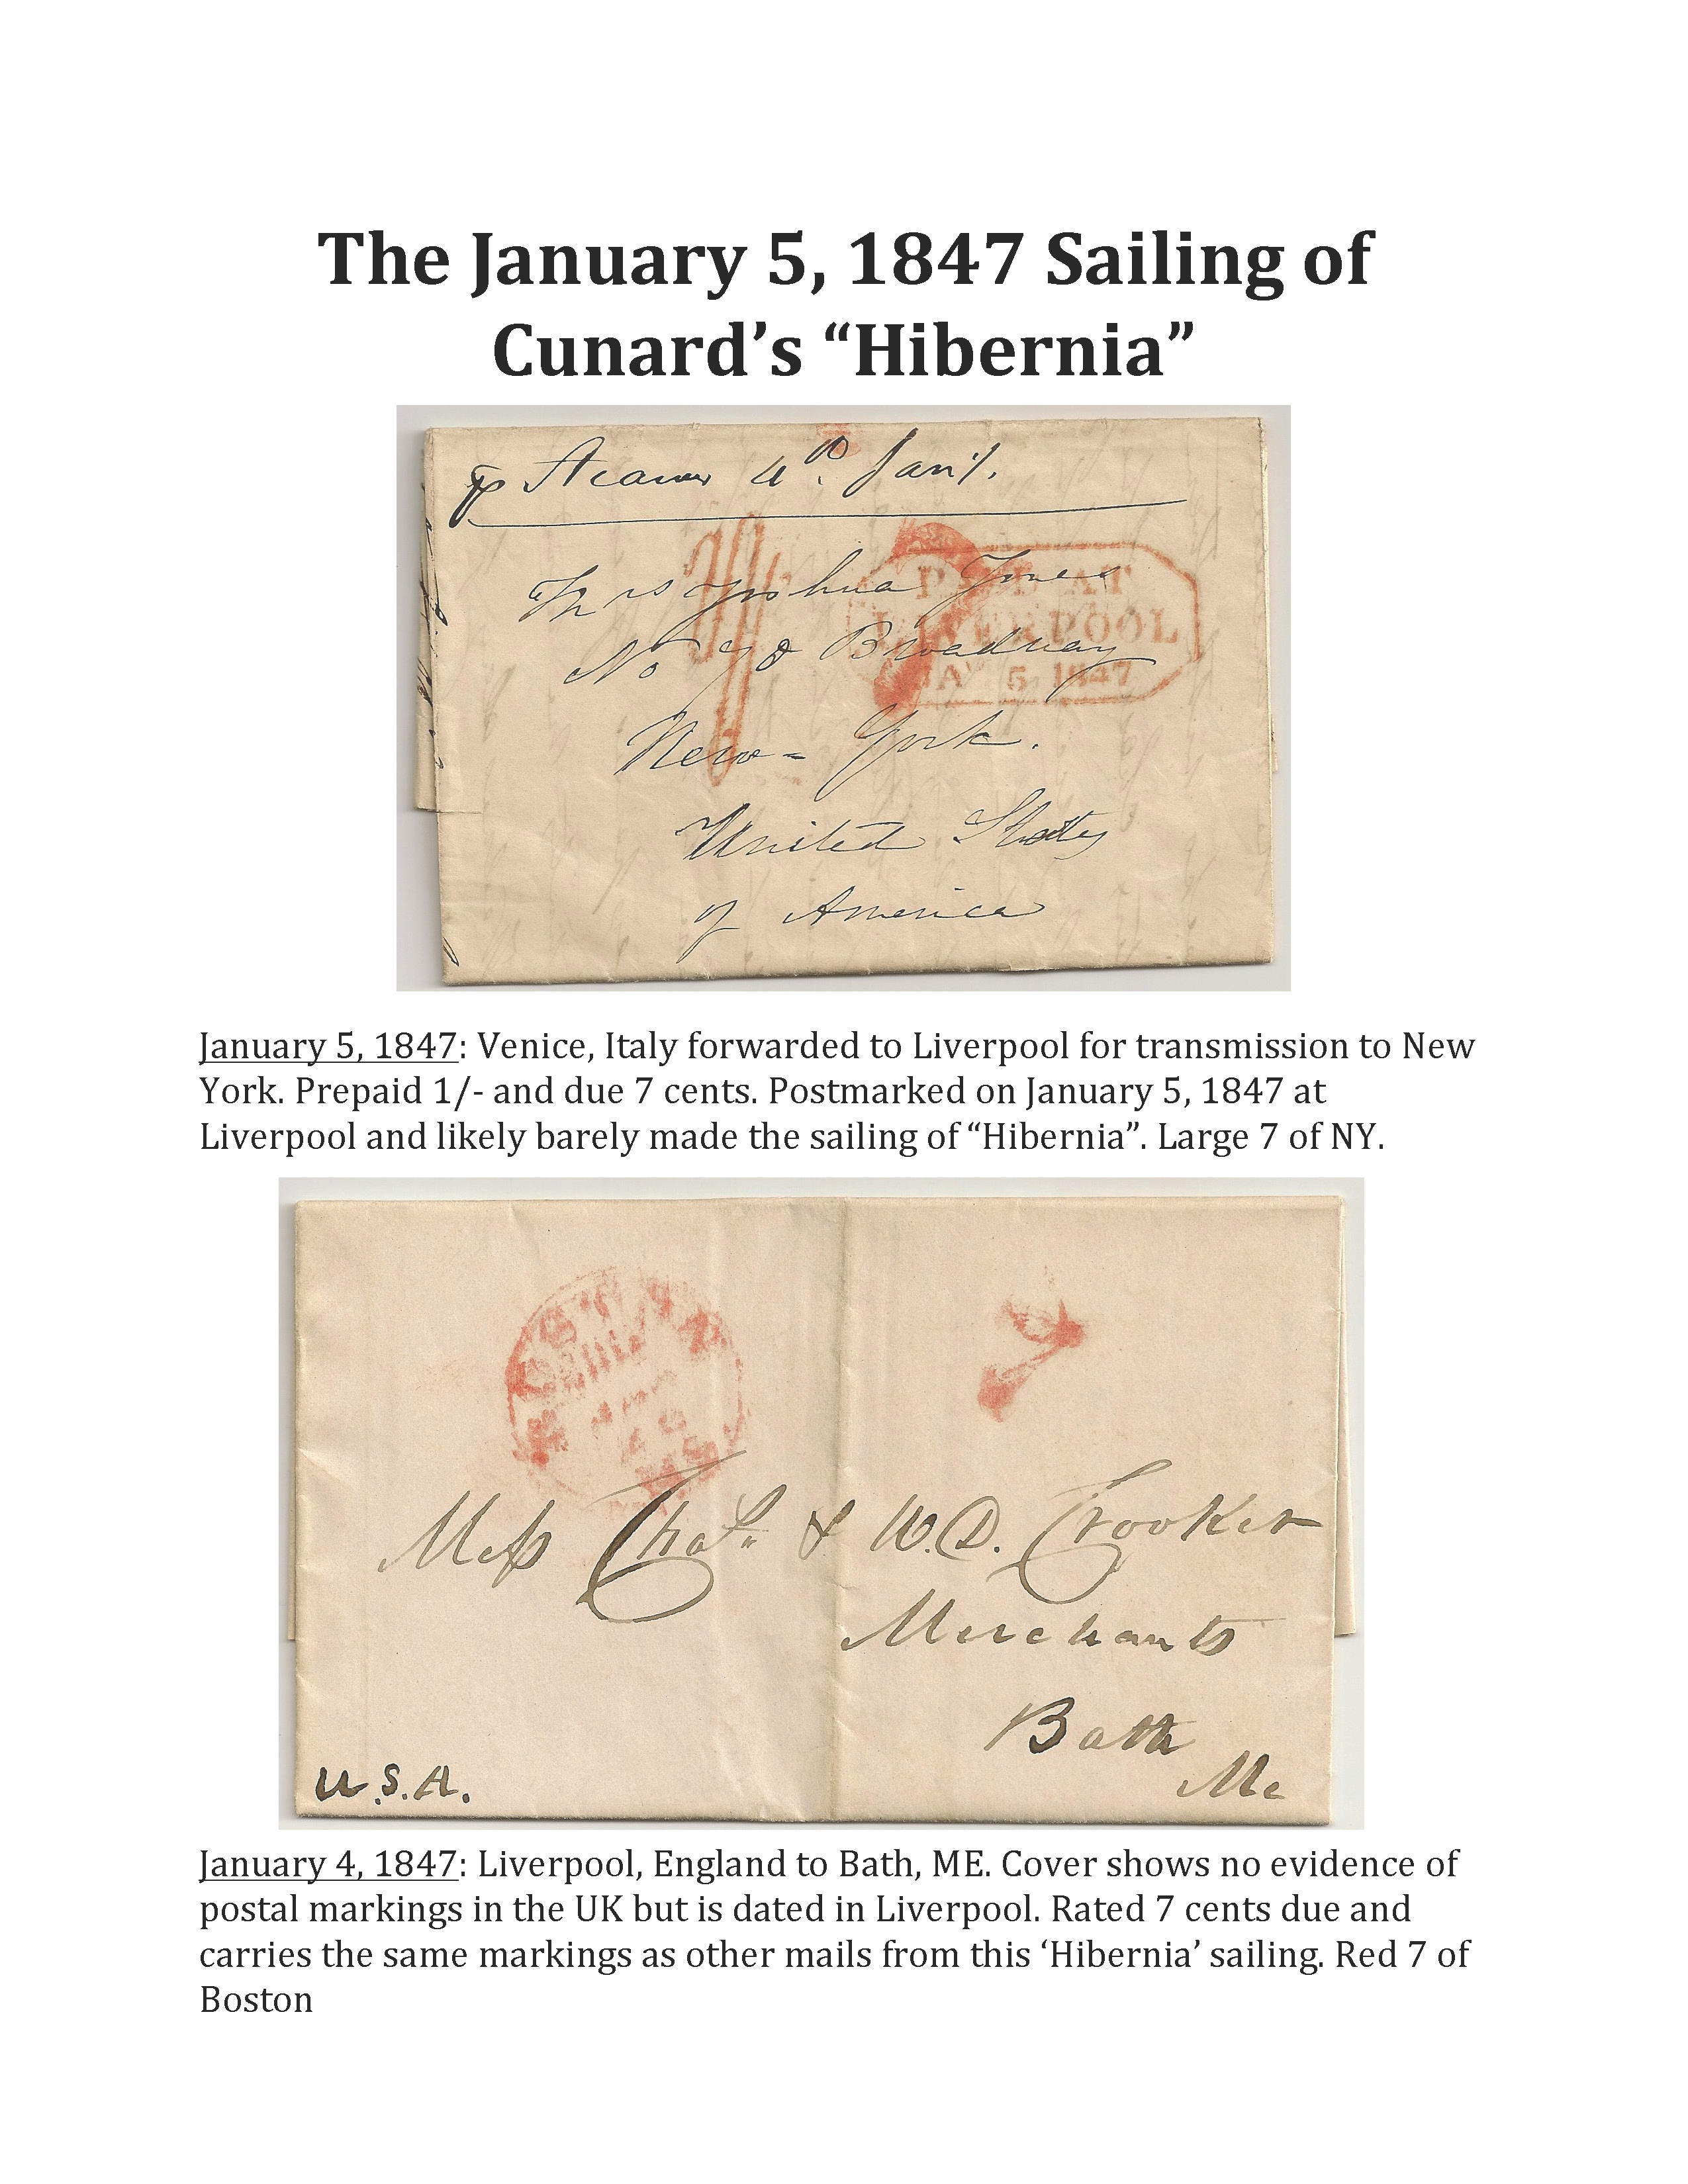 The January 5, 1847 Sailing of
Cunard’s “Hibernia”
p Steamer 4th Jany.
PAID AT
LIVERPOOL
JA 5 1847
7
Mrs Joshua Jones
No 78 Broadway
New-York.
United States
of America
January 5, 1847: Venice, Italy forwarded to Liverpool for transmission to New
York. Prepaid 1/- and due 7 cents. Postmarked on January 5, 1847 at
Liverpool and likely barely made the sailing of “Hibernia”. Large 7 of NY.
7
Mess Chas. & W.D. Crooker
Merchants
Bath
Me
U.S.A.
January 4, 1847: Liverpool, England to Bath, ME. Cover shows no evidence of
postal markings in the UK but is dated in Liverpool. Rated 7 cents due and
carries the same markings as other mails from this ‘Hibernia’ sailing. Red 7 of
Boston